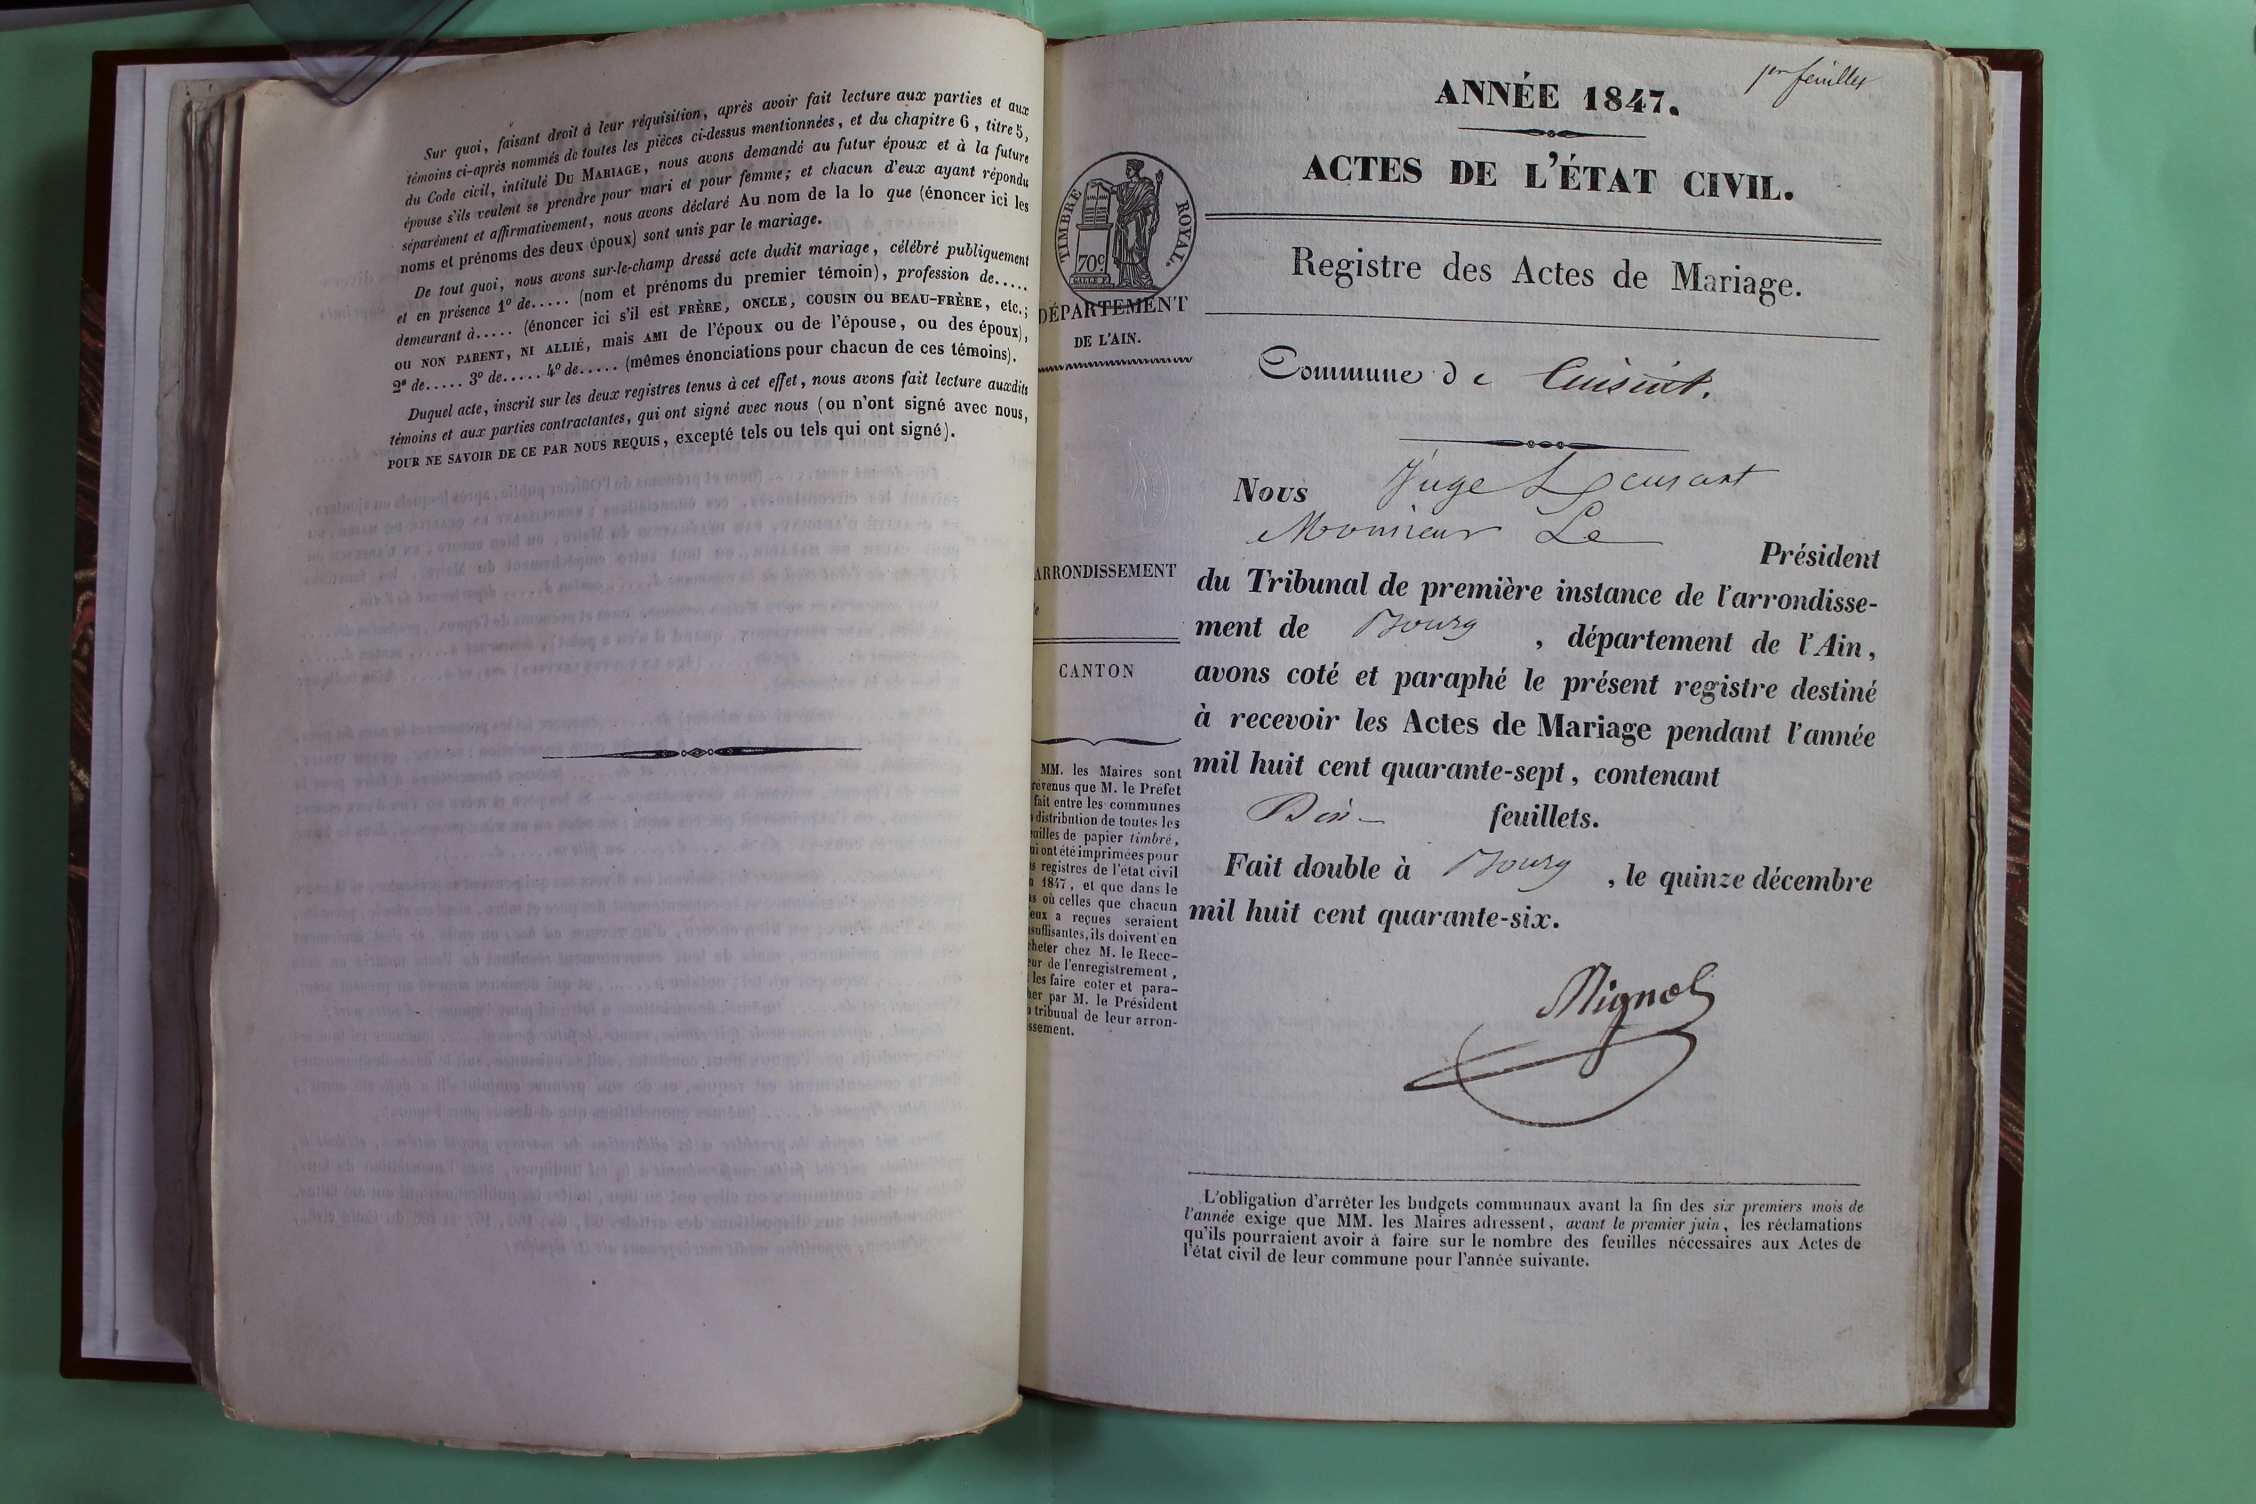 Sur quoi, faisant droit à leur réquisition, après avoir fait lecture aux parties et aux
témoins ci-après nommés de toutes les pièces ci-dessus mentionnées, et du chapitre 6, titre 5,
du Code civil, intitulé DU MARIAGE, nous avons demandé au futur époux et à la future
épouse s'ils veulent se prendre pour mari et pour femme; et chacun d'eux ayant répondu
séparément et affirmativement, nous avons déclaré Au nom de la lo que (énoncer ici les
noms et prénoms des deux époux) sont unis par le mariage.
De tout quoi, nous avons sur-le-champ dressé acte dudit mariage, célébré publiquement
et en présence 1º de..... (nom et prénoms du premier témoin), profession de.....
demeurant à..... (énoncer ici s'il est FRÈRE, ONCLE, COUSIN OU BEAU-FRÈRE, etc.;
OU NON PARENT, NI ALLIÉ, mais AMI de l'époux ou de l'épouse, ou des époux),
2º de..... 3º de..... 4º de..... (mêmes énonciations pour chacun de ces témoins).
Duquel acte, inscrit sur les deux registres tenus à cet effet, nous avons fait lecture auxdits
témoins et aux parties contractantes, qui ont signé avec nous (ou n'ont signé avec nous,
POUR NE SAVOIR DE CE PAR NOUS REQUIS, excepté tels ou tels qui ont signé).
1er feuillet
ANNÉE 1847.
ACTES DE L'ÉTAT CIVIL.
TIMBRE ROYAL.
70c
Registre des Actes de Mariage.
DÉPARTEMENT
DE L'AIN.
Commune de
Nous Juge
Monsieur Le
Président
ARRONDISSEMENT
du Tribunal de première instance de l'arrondisse-
ment de Bourg, département de l'Ain,
CANTON
avons coté et paraphé le présent registre destiné
à recevoir les Actes de Mariage pendant l'année
mil huit cent quarante-sept, contenant
Dix feuillets.
Fait double à Bourg, le quinze décembre
mil huit cent quarante-six.
Mignot
MM. les Maires sont
révenus que M. le Préfet
fait entre les communes
distribution de toutes les
uilles de papier timbré,
ui ont été imprimées pour
s registres de l'état civil
1847, et que dans le
s où celles que chacun
eux a reçues seraient
suffisantes, ils doivent en
cheter chez M. le Rece-
eur de l'enregistrement,
les faire coter et para-
her par M. le Président
tribunal de leur arron-
ssement.
L'obligation d'arrêter les budgets communaux avant la fin des six premiers mois de
l'année exige que MM. les Maires adressent, avant le premier juin, les réclamations
qu'ils pourraient avoir à faire sur le nombre des feuilles nécessaires aux Actes de
l'état civil de leur commune pour l'année suivante.